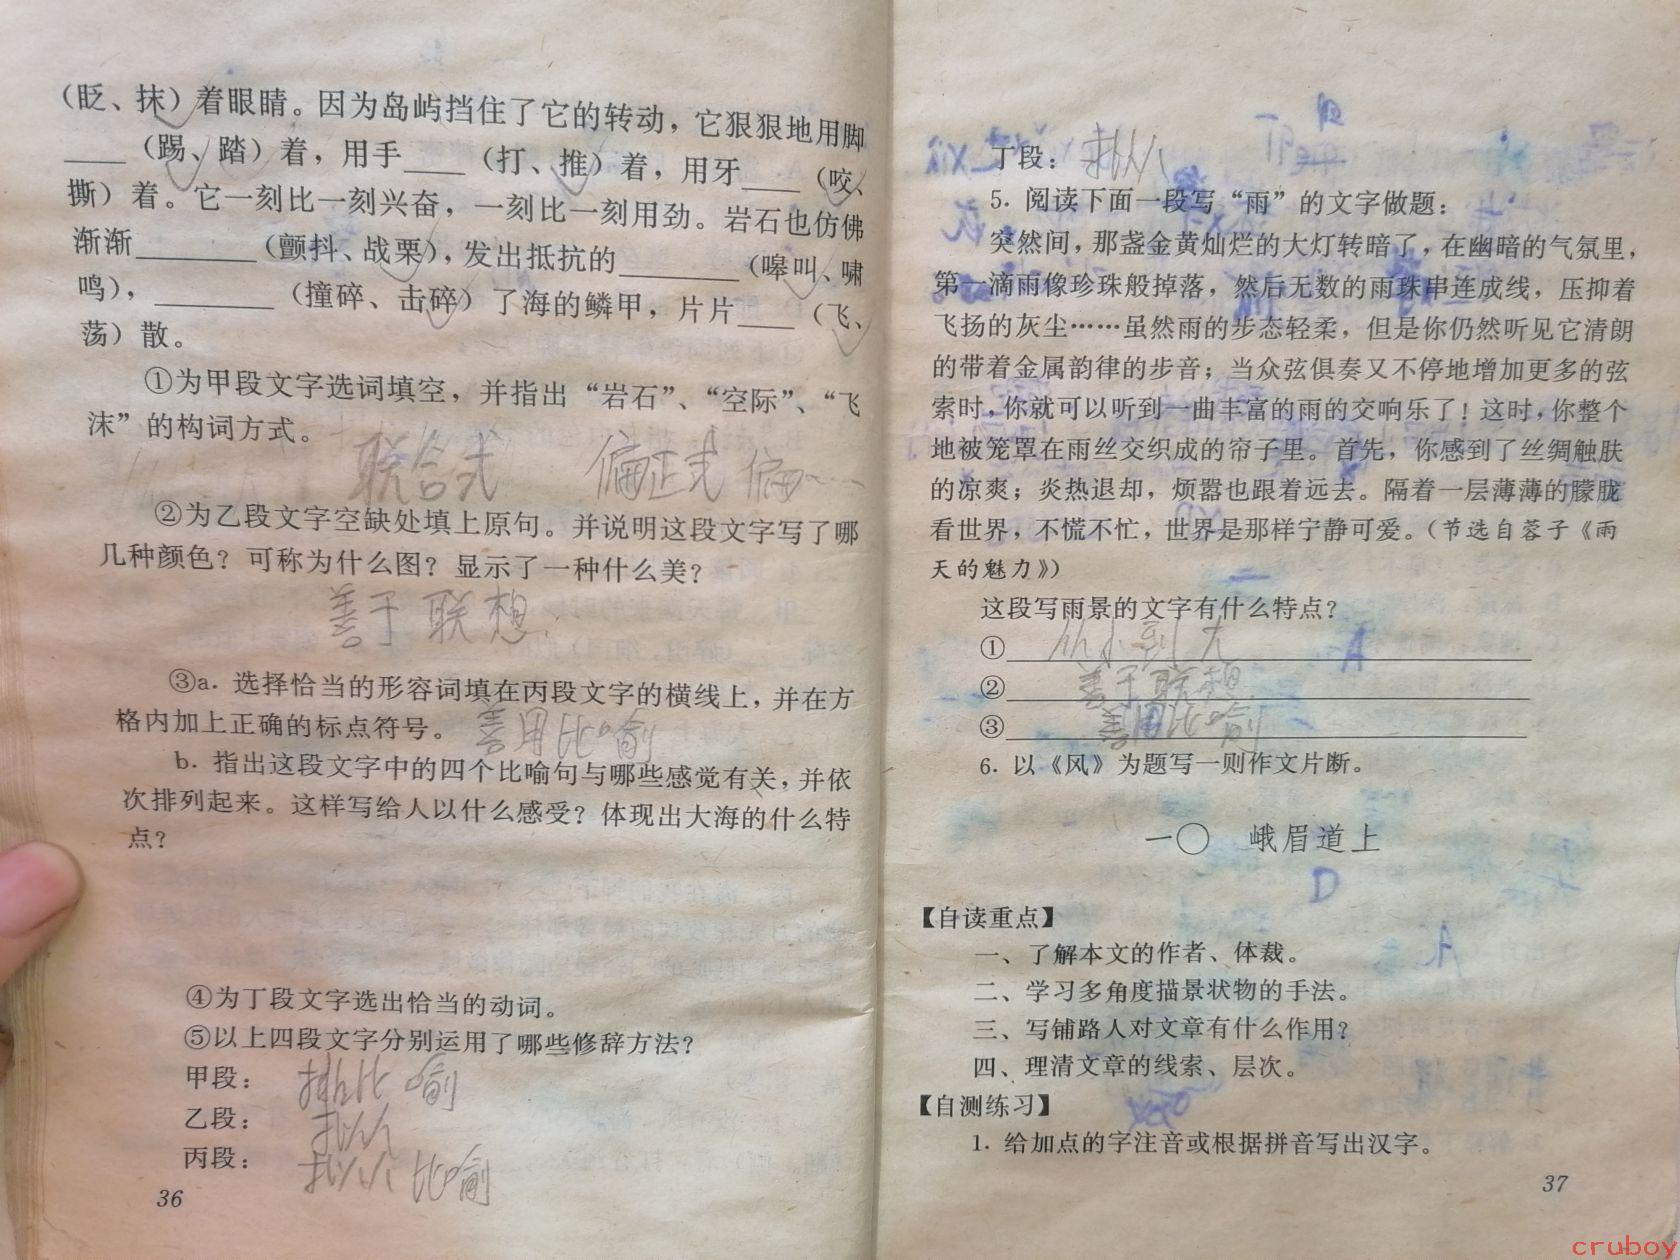 (眨、抹)着眼睛。因为岛屿挡住了它的转动，它狠狠地用脚
____(踢、踏)着，用手____(打、推)着，用牙____(咬、
撕)着。它一刻比一刻兴奋，一刻比一刻用劲。岩石也仿佛
渐渐________(颤抖、战栗)，发出抵抗的________(嗥叫、啸
鸣)，______(撞碎、击碎)了海的鳞甲，片片____(飞、
荡)散。
①为甲段文字选词填空，并指出“岩石”、“空际”、“飞
沫”的构词方式。
联合式 偏正式 偏
②为乙段文字空缺处填上原句。并说明这段文字写了哪
几种颜色？可称为什么图？显示了一种什么美？
善于联想
③a. 选择恰当的形容词填在丙段文字的横线上，并在方
格内加上正确的标点符号。 善用比喻
b. 指出这段文字中的四个比喻句与哪些感觉有关，并依
次排列起来。这样写给人以什么感受？体现出大海的什么特
点？
④为丁段文字选出恰当的动词。
⑤以上四段文字分别运用了哪些修辞方法？
甲段： 排比喻
乙段： 拟人
丙段： 拟人 比喻
36
丁段： 排
5. 阅读下面一段写“雨”的文字做题：
突然间，那盏金黄灿烂的大灯转暗了，在幽暗的气氛里，
第一滴雨像珍珠般掉落，然后无数的雨珠串连成线，压抑着
飞扬的灰尘……虽然雨的步态轻柔，但是你仍然听见它清朗
的带着金属韵律的步音；当众弦俱奏又不停地增加更多的弦
索时，你就可以听到一曲丰富的雨的交响乐了！这时，你整个
地被笼罩在雨丝交织成的帘子里。首先，你感到了丝绸触肤
的凉爽；炎热退却，烦嚣也跟着远去。隔着一层薄薄的朦胧
看世界，不慌不忙，世界是那样宁静可爱。(节选自蓉子《雨
天的魅力》)
这段写雨景的文字有什么特点？
① 从小到大
② 善于联想
③ 善用比喻
6. 以《风》为题写一则作文片断。
一〇 峨眉道上
D
【自读重点】
一、了解本文的作者、体裁。
二、学习多角度描景状物的手法。
三、写铺路人对文章有什么作用？
四、理清文章的线索、层次。
【自测练习】
1. 给加点的字注音或根据拼音写出汉字。
37
cruboy